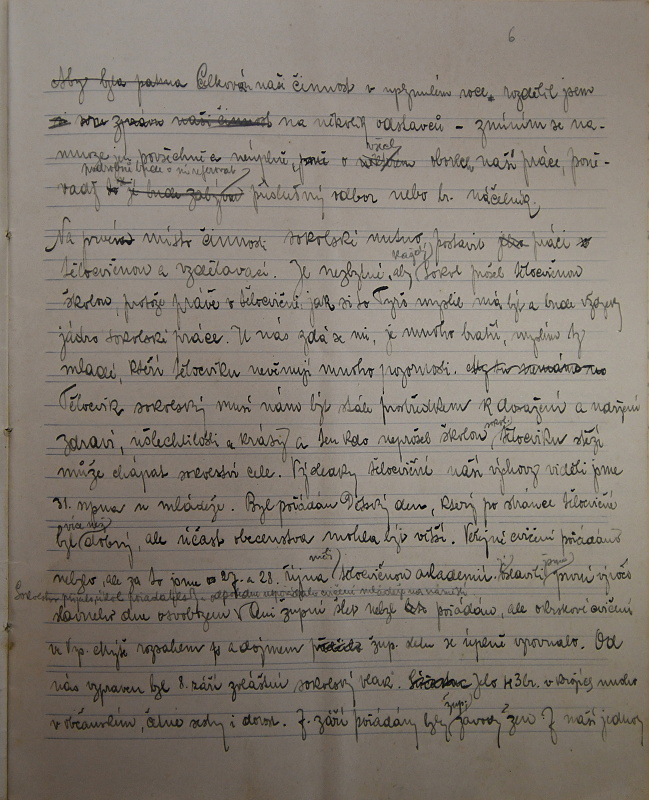 6
Aby byla patrna Celková naší činnost v uplynulém roce, rozdělil jsem
na několik odstavců – zmíním se na-
mnoze jen povšechně a neúplně, o všech oborech naší práce, poně-
podrobně bude o ní referovat
vadž příslušný odbor nebo br. náčelník.
Na prvém místo činnosti sokolské nutno postavit práci
každý
tělocvičnou a vzdělávací. Je nezbytné, aby sokol prošel tělocvičnou
školou, protože právě v tělocvičně, jak si to Tyrš myslil má být a bude vždycky
jádro sokolské práce. U nás zdá se mi, je mnoho bratří, myslím ty
mladé, kteří tělocviku nevěnují mnoho pozornosti.
Tělocvik sokolský musí námi být stále prostředkem k dosažení a udržení
zdraví, ušlechtilosti a krásy a ten kdo neprošel školou sokol. tělocviku stěží
může chápat sokolství celé. Výsledky tělocvičné naší výchovy viděli jsme
31. srpna u mládeže. Byl pořádán Dětský den, který po stránce tělocvičné
více než
byl dobrý, ale účast obecenstva mohla být větší. Veřejné cvičení pořádáno
nebylo, ale za to jsme 27. a 28. října měli tělocvičnou akademii. Oslavili jí jsme první výročí
slavného dne osvobození v župní slet nebyl pořádán, ale okrskové cvičení
ve rozsahem a dojmem žup. sletu se úplně vyrovnalo. Od
nás vypraven byl 8. září zvláštní sokolský vlak. Jelo 43 br. v krojích mnoho
v občanském, četné sestry i dorost. 7. září pořádány byly župní závody žen. Z naší jednoty